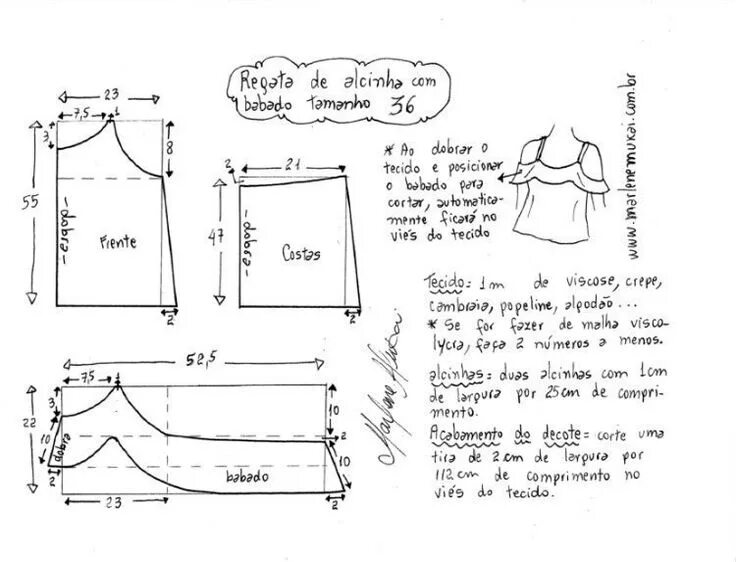 Regata de alcinha com
babado tamanho 36
www.marlenemukai.com.br
23
7,5
1
3
8
55
- dobra -
Frente
2
2
21
47
- dobra -
Costas
2
* Ao dobrar o
tecido e posicionar
o babado para
cortar, automatica-
mente ficará no
viés do tecido
Tecido: 1m de viscose, crepe,
cambraia, popeline, algodão ...
* Se for fazer de malha visco-
lycra, faça 2 números a menos.
alcinhas: duas alcinhas com 1cm
de largura por 25cm de compri-
mento.
Acabamento do decote: corte uma
tira de 2cm de largura por
112cm de comprimento no
viés do tecido.
Marlene Mukai
52,5
7,5
1
3
10
22
10
dobra
2
10
2
babado
23
2